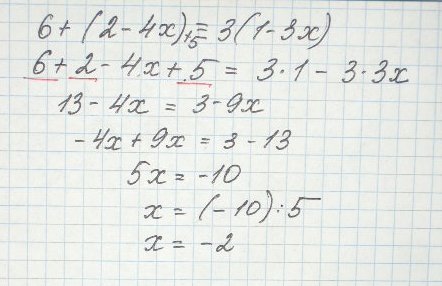 6 + (2 - 4x) + 5 = 3(1 - 3x)
6 + 2 - 4x + 5 = 3 · 1 - 3 · 3x
13 - 4x = 3 - 9x
-4x + 9x = 3 - 13
5x = -10
x = (-10) : 5
x = -2